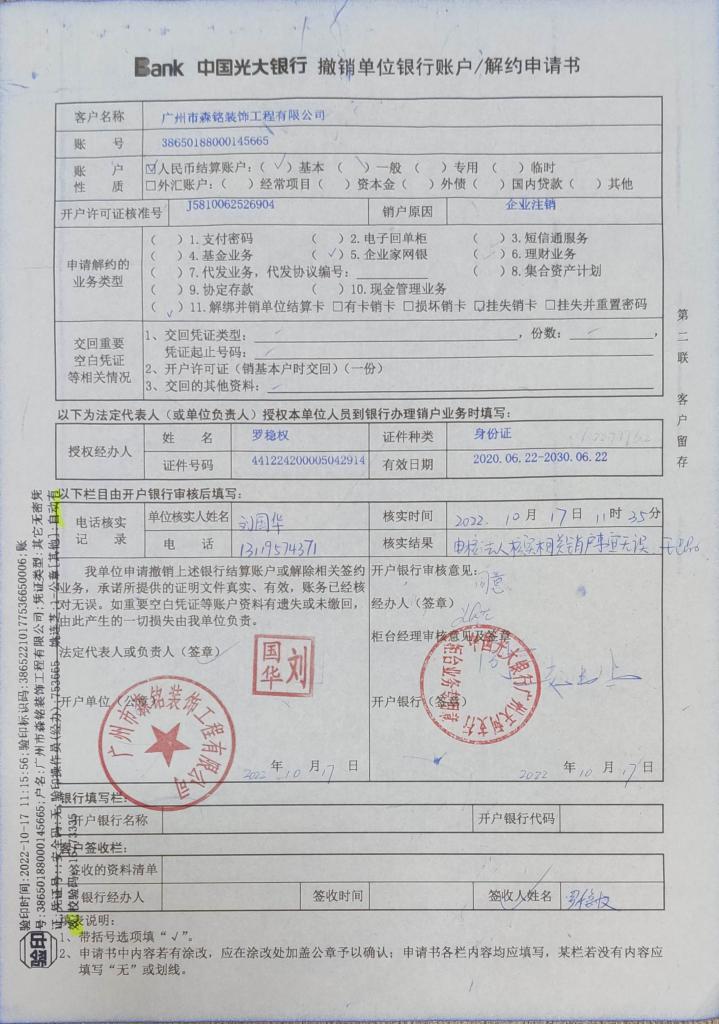 Bank 中国光大银行 撤销单位银行账户/解约申请书
客户名称 广州市森铭装饰工程有限公司
账 号 38650188000145665
账 户 性 质 ☑人民币结算账户:(√)基本 ( )一般 ( )专用 ( )临时
□外汇账户:( )经常项目( )资本金( )外债( )国内贷款( )其他
开户许可证核准号 J5810062526904 销户原因 企业注销
申请解约的业务类型
( )1.支付密码 ( )2.电子回单柜 ( )3.短信通服务
( )4.基金业务 (√)5.企业家网银 ( )6.理财业务
( )7.代发业务,代发协议编号:
( )8.集合资产计划
( )9.协定存款 ( )10.现金管理业务
(√)11.解绑并销单位结算卡 □有卡销卡 □损坏销卡 ☑挂失销卡 □挂失并重置密码
交回重要空白凭证等相关情况
1、交回凭证类型: ,份数: ,
凭证起止号码:
2、开户许可证(销基本户时交回)(一份)
3、交回的其他资料:
第二联 客户留存
以下为法定代表人(或单位负责人)授权本单位人员到银行办理销户业务时填写:
授权经办人 姓 名 罗稳权 证件种类 身份证
证件号码 441224200005042914 有效日期 2020.06.22-2030.06.22
以下栏目由开户银行审核后填写:
电话核实记 录 单位核实人姓名 刘国华 核实时间 2022.10月17日11时35分
电 话 13119574371 核实结果 电核法人核实相关销户事宜无误
我单位申请撤销上述银行结算账户或解除相关签约
业务,承诺所提供的证明文件真实、有效,账务已经核
对无误。如重要空白凭证等账户资料有遗失或未缴回,
由此产生的一切损失由我单位负责。
法定代表人或负责人(签章)
刘国华
开户单位(公章)
广州市森铭装饰工程有限公司
2022年10月17日
开户银行审核意见:
同意
经办人(签章)
柜台经理审核意见及签章
开户银行(签章)
2022年10月17日
银行填写栏:
开户银行名称 开户银行代码
客户签收栏:
签收的资料清单
银行经办人 签收时间 签收人姓名 罗稳权
填表说明:
1、带括号选项填“√”。
2、申请书中内容若有涂改,应在涂改处加盖公章予以确认;申请书各栏内容均应填写,某栏若没有内容应
填写“无”或划线。
验印时间:2022-10-17 11:15:56;验印标识码:38652210177536650006;账
号:38650188000145665;户名:广州市森铭装饰工程有限公司;凭证类型:其它无密凭
验印